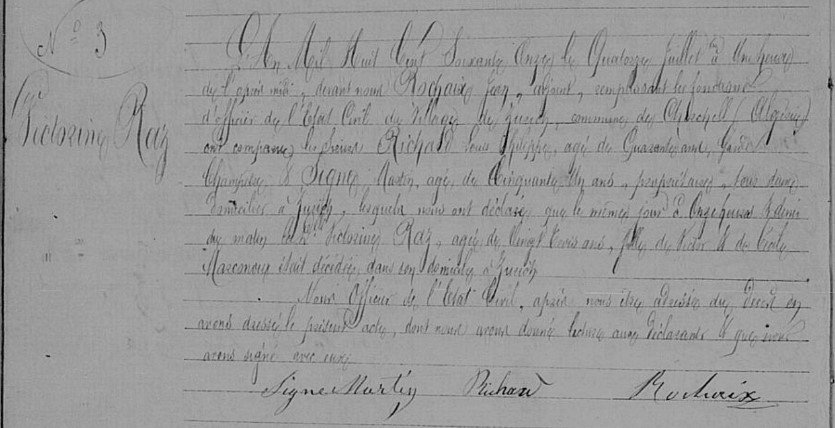 N° 3
Victorine Raz
L'An Mil Huit Cent Soixante Onze le Quatorze Juillet à une heure
de l'après midi, devant nous Rochaix Jean, adjoint, remplissant les fonctions
d'officier de l'Etat Civil du Village de Zurich, commune de Cherchell (Algérie)
ont comparu les sieurs Richard Louis Philippe, agé de Quarante ans, garde
Champêtre & Signe Martin, agé de Cinquante Un ans, propriétaire, tous deux
domiciliés à Zurich, lesquels nous ont déclaré que le même jour à Onze heures & demi
du matin Victorine Raz, agée de Vingt trois ans, fille de Victor & de Cécile
était décédée dans son domicile à Zurich
Nous Officier de l'Etat Civil, après nous être adressé du décès en
avons dressé le présent acte, dont nous avons donné lecture aux déclarants & que nous
avons signé avec eux.
Signe Martin Richard Rochaix